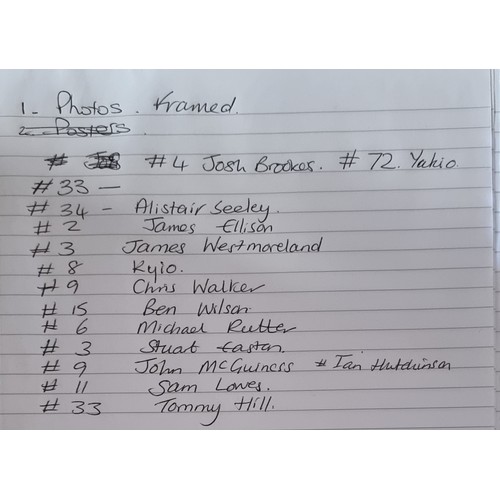 1- Photos. Framed.
2- Posters.
# #4 Josh Brookes. #72. Yukio
#33 —
#34 - Alistair Seeley.
#2 James Ellison
#3 James Westmoreland
#8 Kyio.
#9 Chris Walker
#15 Ben Wilson
#6 Michael Rutter
#3 Stuart Easton.
#9 John McGuiness # Ian Hutchinson
#11 Sam Lowes.
#33 Tommy Hill.